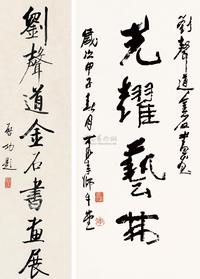 劉聲道金石書畫展
啟功題
劉聲道金石書畫展
光耀藝林
歲次甲子春月